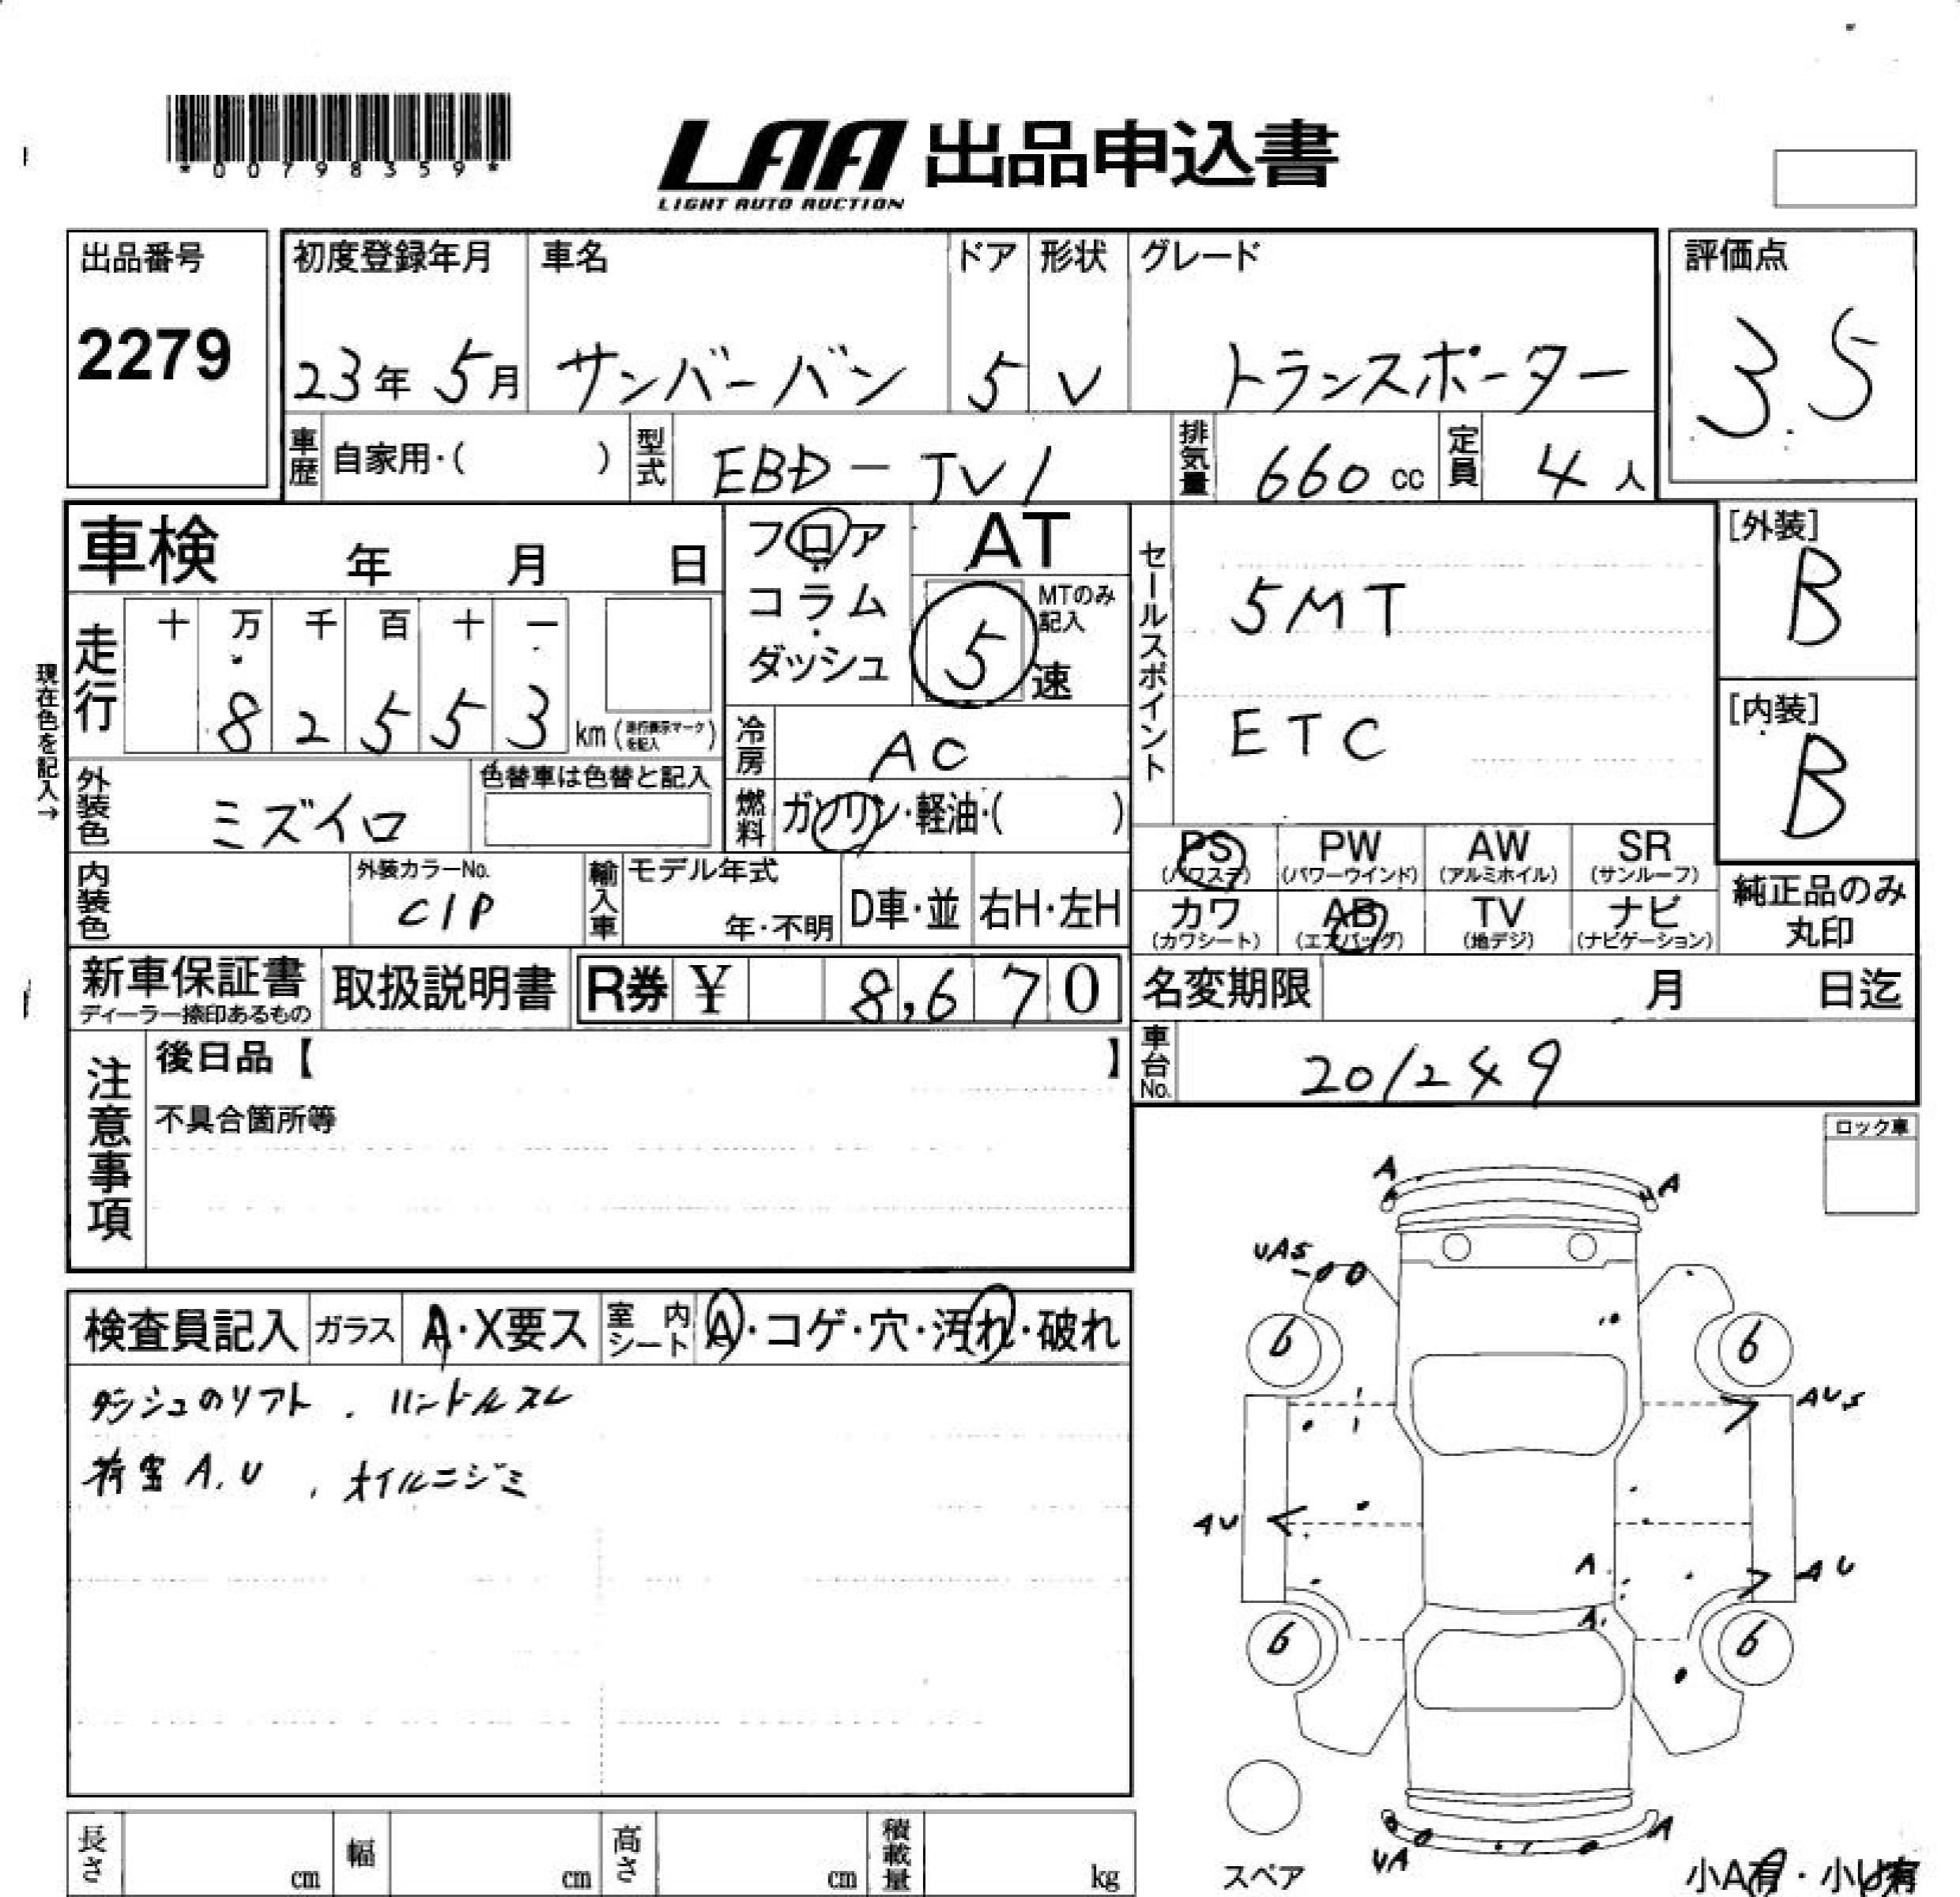 *00798359*
LAA 出品申込書
LIGHT AUTO AUCTION
出品番号
2279
初度登録年月
23年 5月
車名
サンバーバン
ドア
5
形状
V
グレード
トランスポーター
評価点
3.5
車歴 自家用・( )
型式 EBD-TV1
排気量 660 cc
定員 4 人
車検 年 月 日
フロア・コラム・ダッシュ
AT
5 速
MTのみ記入
セールスポイント
5MT
ETC
[外装]
B
[内装]
B
現在色を記入→
走行 十 万 千 百 十 一
8 2 5 5 3 km (走行表示マークを記入)
冷房 AC
外装色 ミズイロ
色替車は色替と記入
燃料 ガソリン・軽油・( )
PS (パワステ)
PW (パワーウインド)
AW (アルミホイル)
SR (サンルーフ)
カワ (カワシート)
AB (エアバッグ)
TV (地デジ)
ナビ (ナビゲーション)
純正品のみ丸印
内装色
外装カラーNo.
C1P
輸入車 モデル年式
年・不明
D車・並
右H・左H
新車保証書
ディーラー捺印あるもの
取扱説明書
R券 ¥ 8,670
名変期限 月 日迄
車台No. 201249
注意事項
後日品【 】
不具合箇所等
ロック車
検査員記入 ガラス A・X要ス 室内シート A・コゲ・穴・汚れ・破れ
ダッシュのリフト . ハンドルスレ
荷室 A.U , オイルニジミ
A
A
UAS
6
6
AUS
AU
A
AU
A
6
6
UA
A
スペア
小A有・小U有
長さ cm
幅 cm
高さ cm
積載量 kg